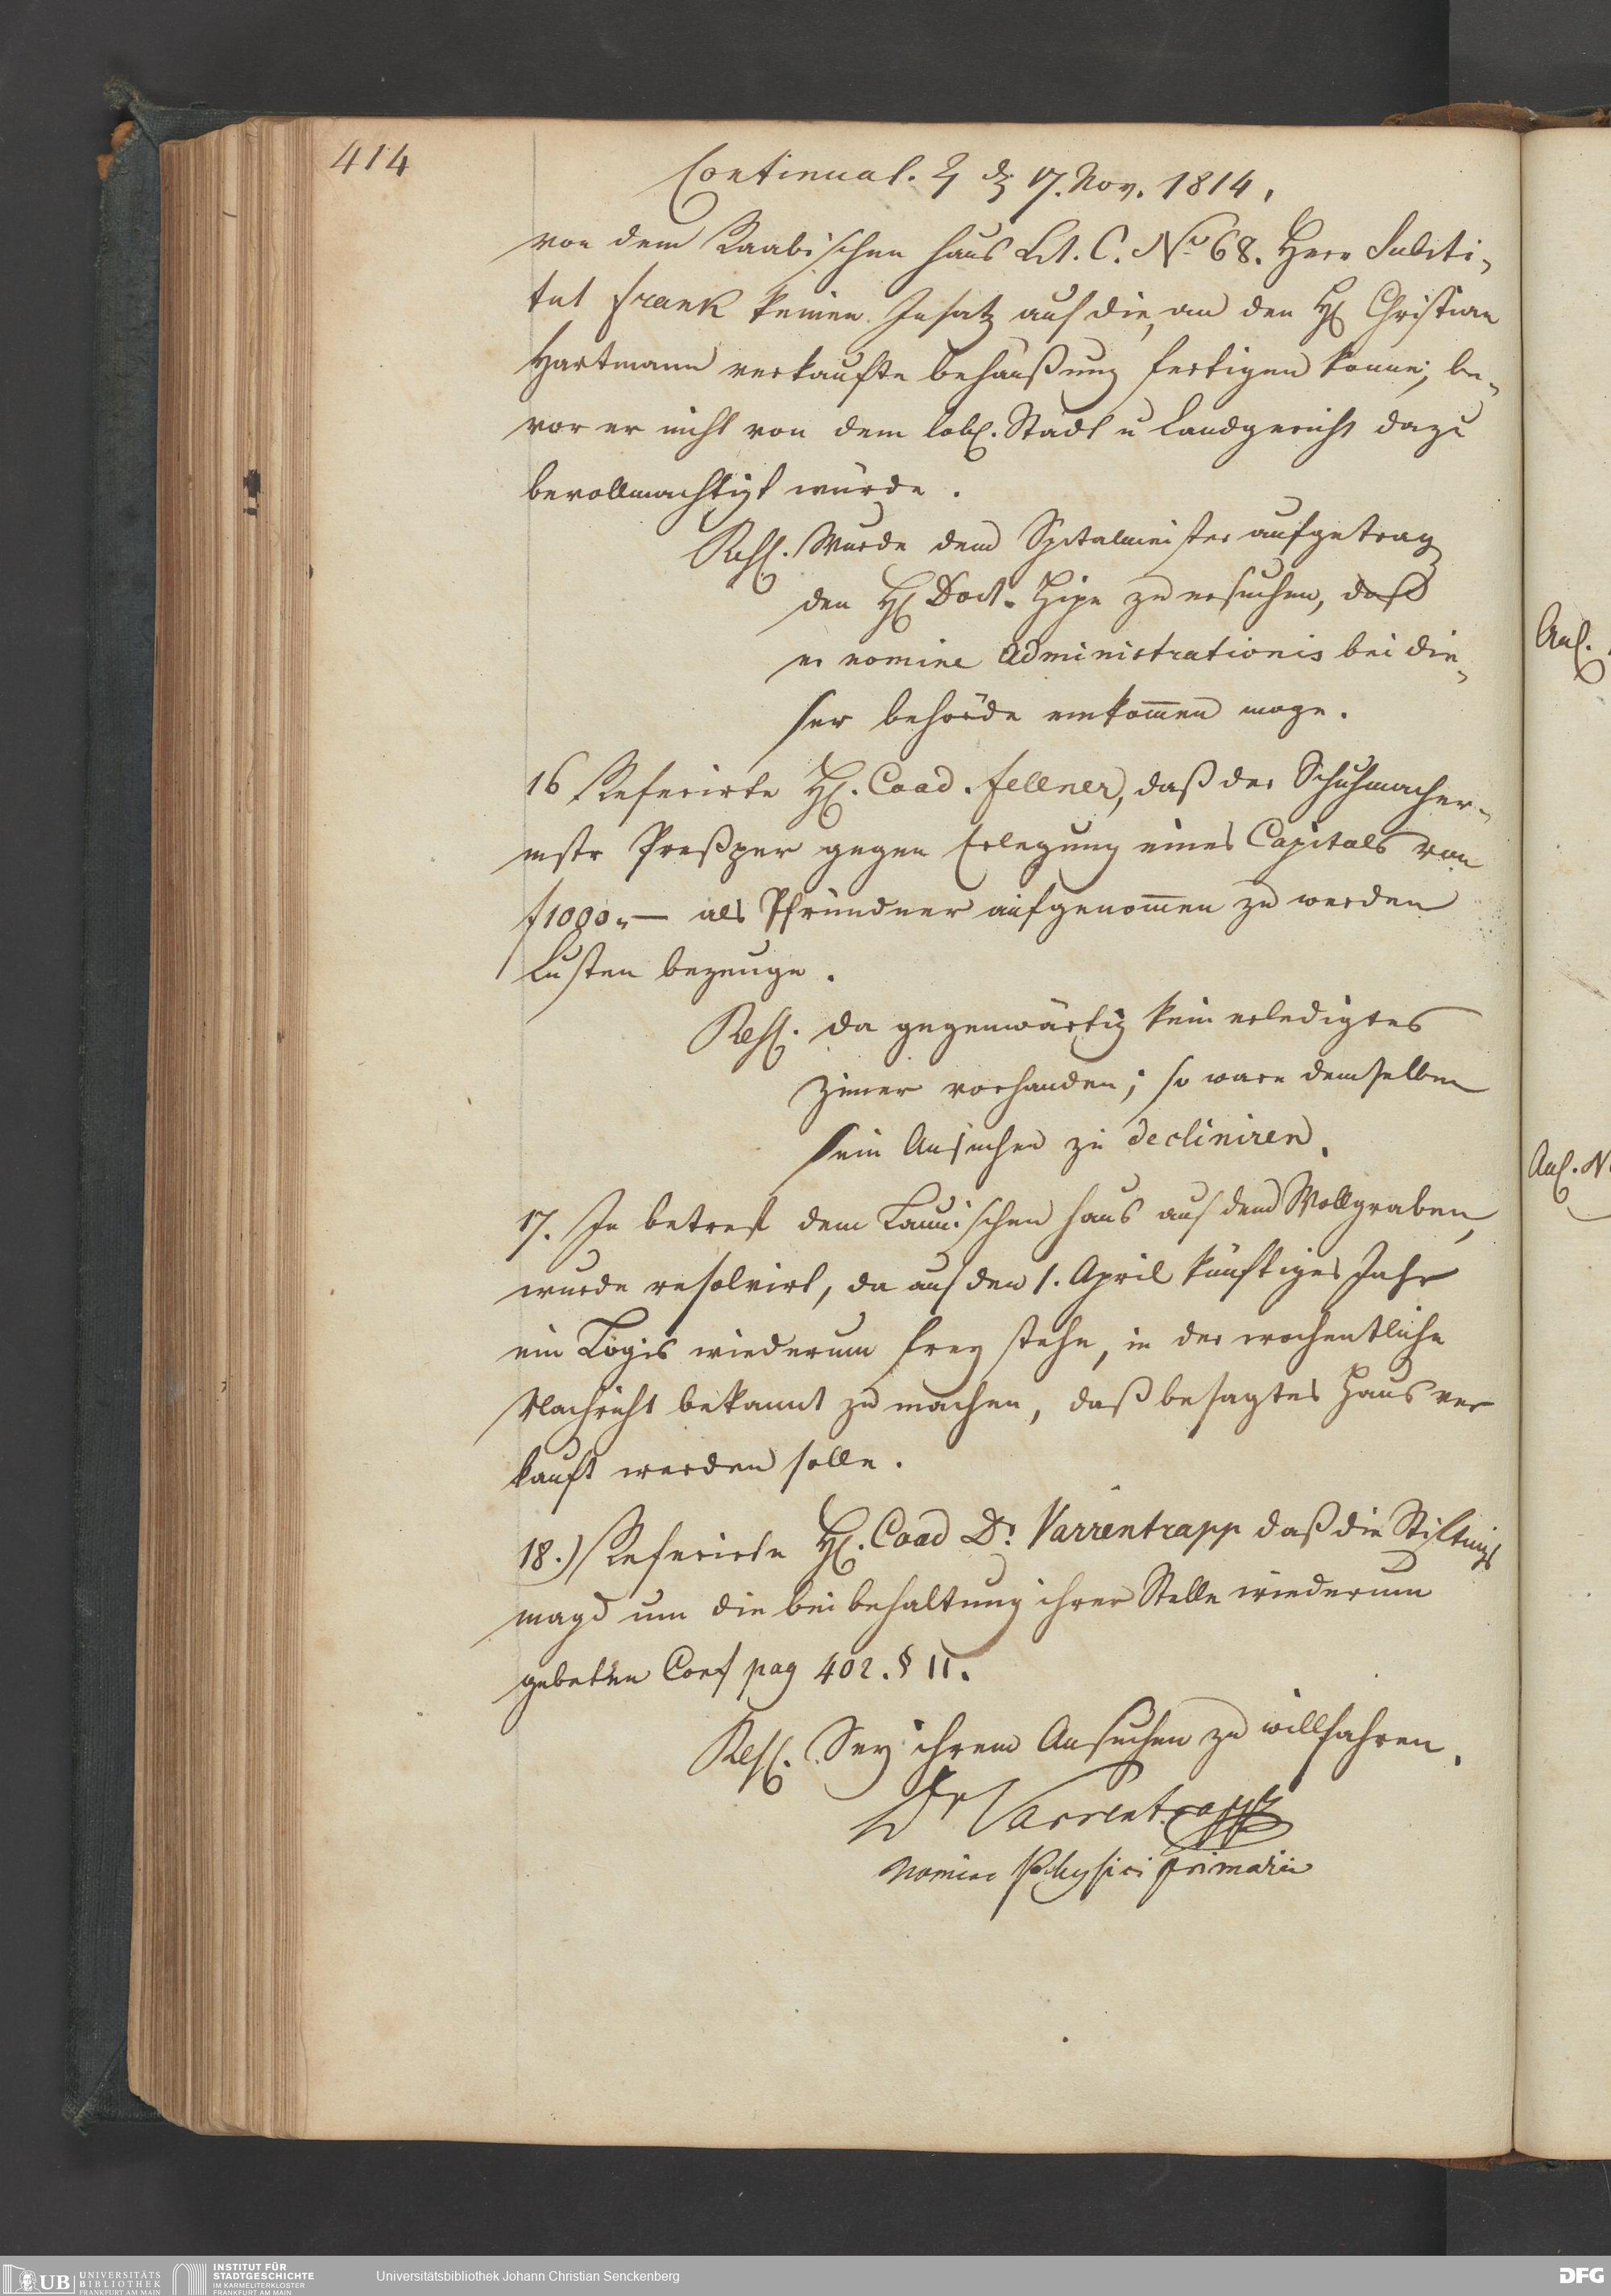 414
Continuat. ♃ d 17. Nov. 1814.
von dem Raabischen Haus Lit. C. No 68. Herr Substi-
tut Frank keinen Insatz auf die, an den H Christian
Hartmann verkaufte Behaußung fertigen konne, be-
vor er nicht von dem lobl. Stadt u Landgericht dazu
bevollmachtigt würde.
Resl. Wurde dem Spitalmeister aufgetrag
den H Doct. zu ersuchen, daß
er nomine Administrationis bei die-
ser Behörde einkomen moge.
16 Referirte H. Coad. Fellner, daß der Schuhmacher-
mstr gegen Erlegung eines Capitals von
f 1000.- als Pfründner aufgenomen zu werden
Lusten bezeuge.
Resl. da gegenwärtig kein erledigtes
Zimer vorhanden; so ware demselben
sein Ansuchen zu decliniren.
17. In betreff dem Haus auf dem Wollgraben,
wurde resolvirt, da auf den 1. April künftiges Jahr
ein Logis wiederum frey stehe, in der wochentliche
Nachricht bekannt zu machen, daß besagtes Haus ver
kauft werden solle.
18.) Referirte H. Coad Dr. Varrentrapp daß die Stiftungs
magd um die beibehaltung ihrer Stelle wiederum
gebeten Conf pag 402. § 11.
Resl. Sey ihrem Ansuchen zu willfahren.
Dr Varrentrapp
Nomine Physici primarii
Anl.
Anl. N
UB UNIVERSITÄTS
BIBLIOTHEK
FRANKFURT AM MAIN
INSTITUT FÜR
STADTGESCHICHTE
IM KARMELITERKLOSTER
FRANKFURT AM MAIN
Universitätsbibliothek Johann Christian Senckenberg
DFG